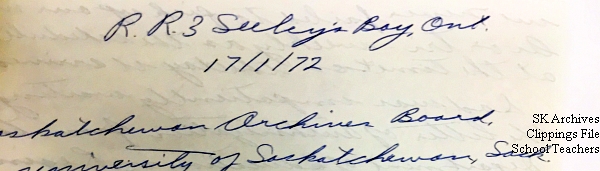 R. R. 3 Seeley's Bay, Ont.
17/1/72
askatchewan Archives Board,
University of Saskatchewan, Sask.
SK Archives
Clippings File
School Teachers